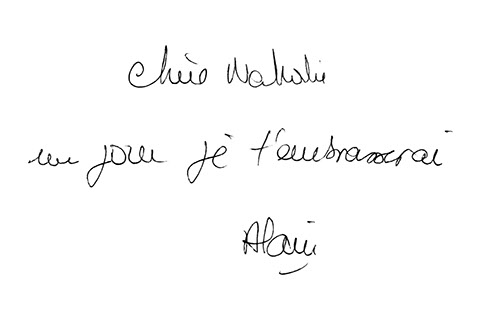 Chère Nathalie
un jour je t'embrasserai
Alain